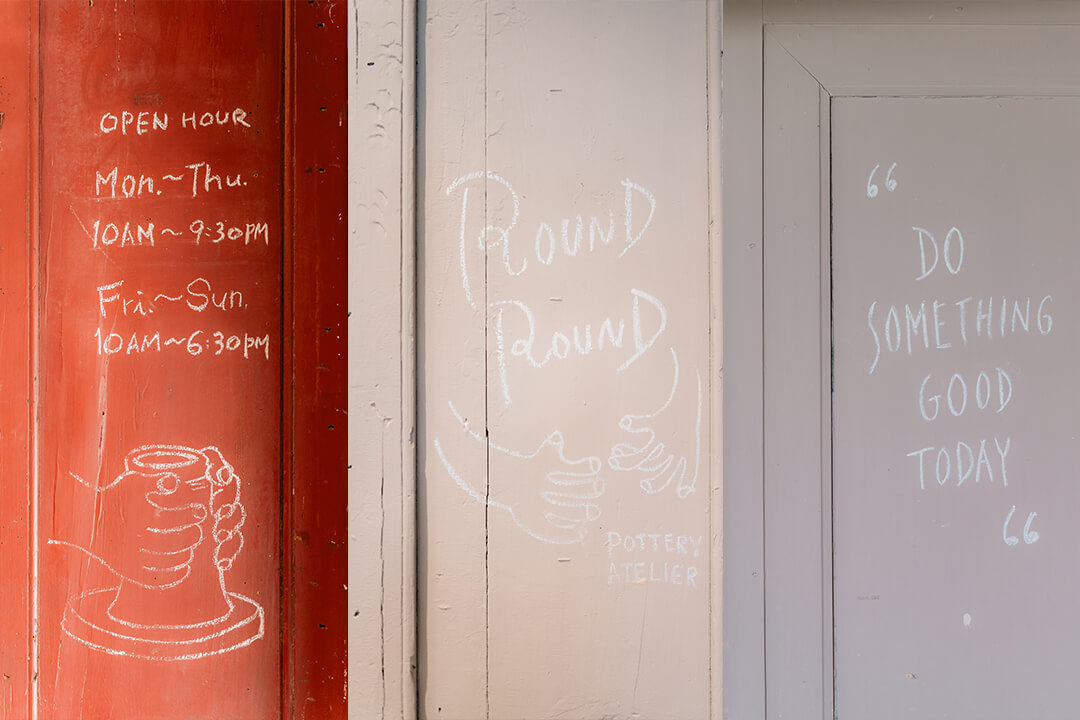 OPEN HOUR
Mon.~Thu.
10AM~9:30PM
Fri.~Sun.
10AM~6:30PM
ROUND
ROUND
POTTERY
ATELIER
“
DO
SOMETHING
GOOD
TODAY
“